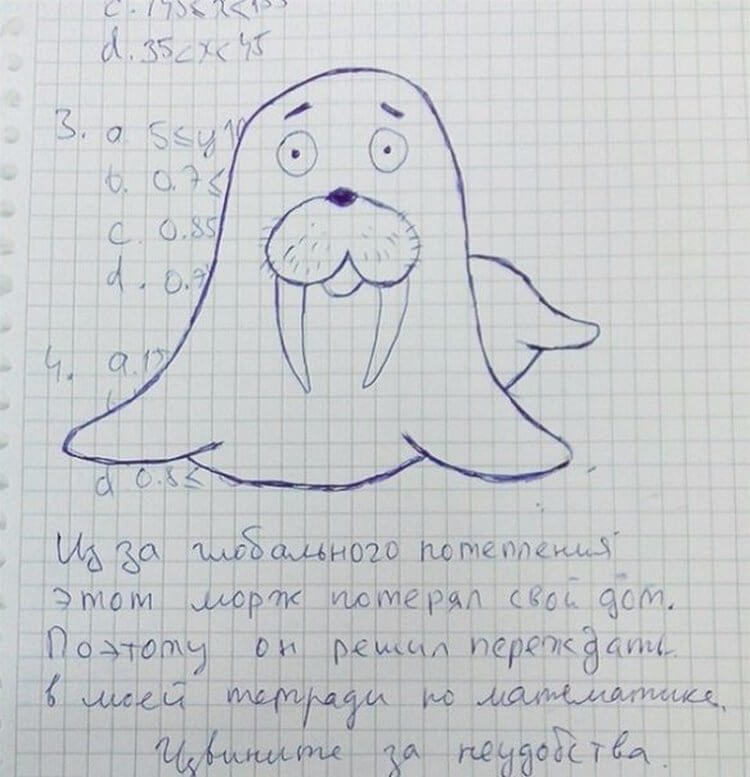 c. 145≤x≤155
d. 35<x<45
3. a 5≤y10
b. 0.7≤
c. 0.85
d. 0.7
4. a.15
d 0.8≤
Из за глобального потепления
этот морж потерял свой дом.
Поэтому он решил переждать
в моей тетради по математике.
Извините за неудобства.